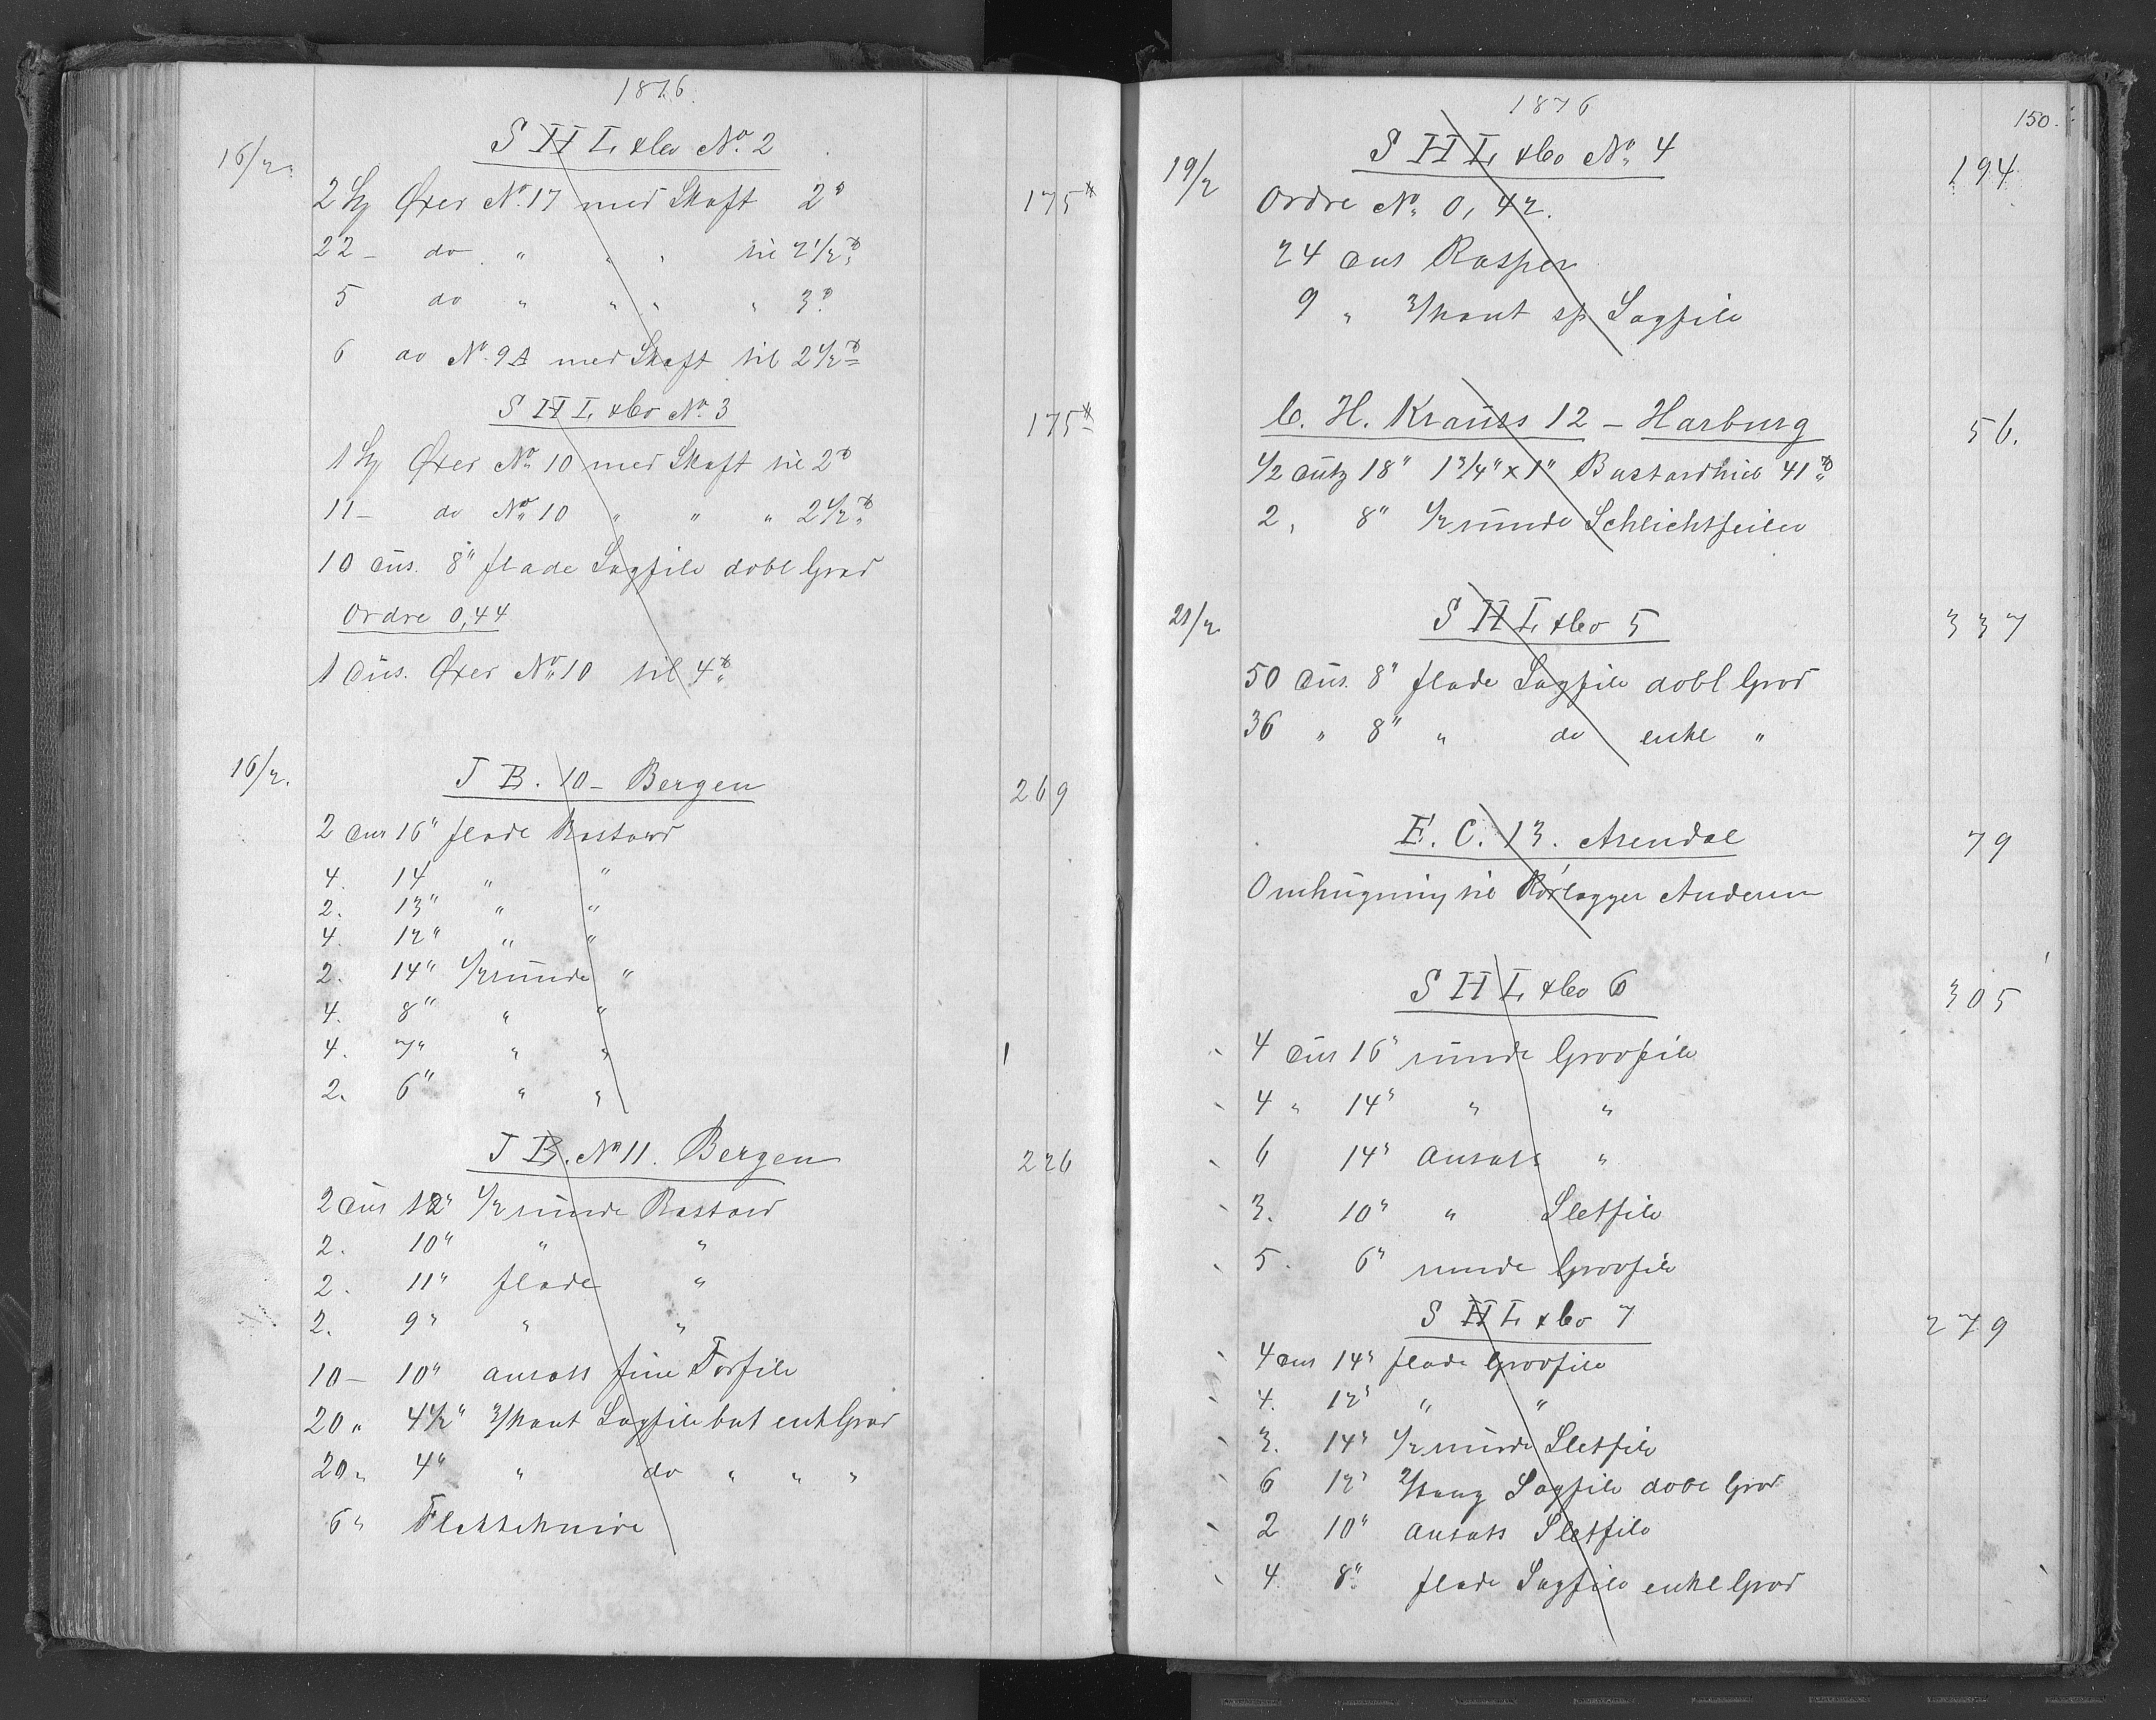 1876.
S H L & Co No. 2
16/2.
2 Øxer No. 17 med Skaft 2 175
22 - do " " " til 2 1/2
5 do " " " " 3
6 do No. 9A med Skaft til 2 1/2
S H L & Co No. 3
175
1 Øxer No. 10 med Skaft til 2
11 - do No. 10 " " " 2 1/2
10 Dus. 8" flade Sagfile dobl Grad
Ordre 0,44
1 Dus. Øxer No. 10 til 4
16/2. J B. 10 - Bergen 269
2 Dus 16" flade Bastard
4. 14 " "
2. 13" " "
4. 12" " "
2. 14" 1/2 runde "
4. 8" " "
4. 7" " "
2. 6" " "
J B. No 11. Bergen 226
2 Dus 12" 1/2 runde Bastard
2. 10" " "
2. 11" flade "
2. 9" " "
10 - 10" ansats fine Forfile
20 " 4 1/2" 3/kant Sagfile but enk Grad
20 " 4" " do " " "
6 "
1876
150.
S H L & Co No. 4
19/2 194
Ordre No. 0,42.
24 Dus Rasper
9 " 3/kant sp Sagfile
C. H. Krauss 12 - Harburg 56.
1/2 Dutz 18" 1 3/4" x 1" Bastardhieb 41
2, 8" 1/2 runde Schlichtfeilen
21/2 S H L & Co 5 337
50 Dus. 8" flade Sagfile dobl Grad
36 " 8" " do enkl "
E. C. 13. Arendal 79
Omhugning til Rørlægger Andersen
S H L & Co 6 305
4 Dus 16" runde Grovfile
4 " 14" " "
6 14" Ansats "
3. 10" " Sletfile
5. 6" runde Grovfile
S H L & Co 7 279
4 Dus 14" flade Grovfile
4. 12" " "
3. 14" 1/2 runde Sletfile
6 12" Sagfile dobl Grad
2 10" Ansats Sletfile
4 8" flade Sagfile enkl Grad